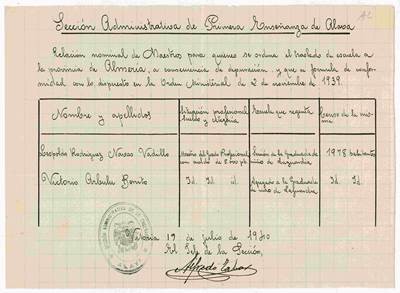 Sección Administrativa de Primera Enseñanza de Alava
Relación nominal de Maestros para quienes se ordena el traslado de escuela a
la provincia de Almería, a consecuencia de depuración y que se formula de confor-
midad con lo dispuesto en la Orden Ministerial de 2 de noviembre de 1939.
Nombre y apellidos
Situación profesional
sueldo y categoría
Escuela que regenta
Censo de la mis-
ma
Leopoldo Rodriguez Navas Vadillo
Maestro del Grado Profesional
con sueldo de
ptas
a la Graduada de
niños de
1978 habitantes
Victorio
Benito
Id. Id. id.
Agregado a la Graduada
de niños de
Id. Id.
Vitoria 19 de julio de 1940
El Jefe de la Sección,
Alfredo